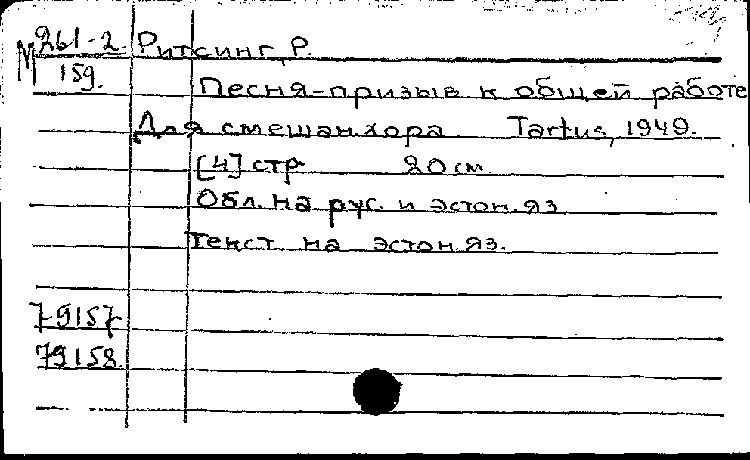 М 261-2 Ритсинг, Р.
159.
Песня-призыв к общей работе
Для смешан. хора Tartus, 1949.
[4] стр 20 см.
Обл. на рус. и эстон. яз
Текст на эстон. яз.
79157
79158